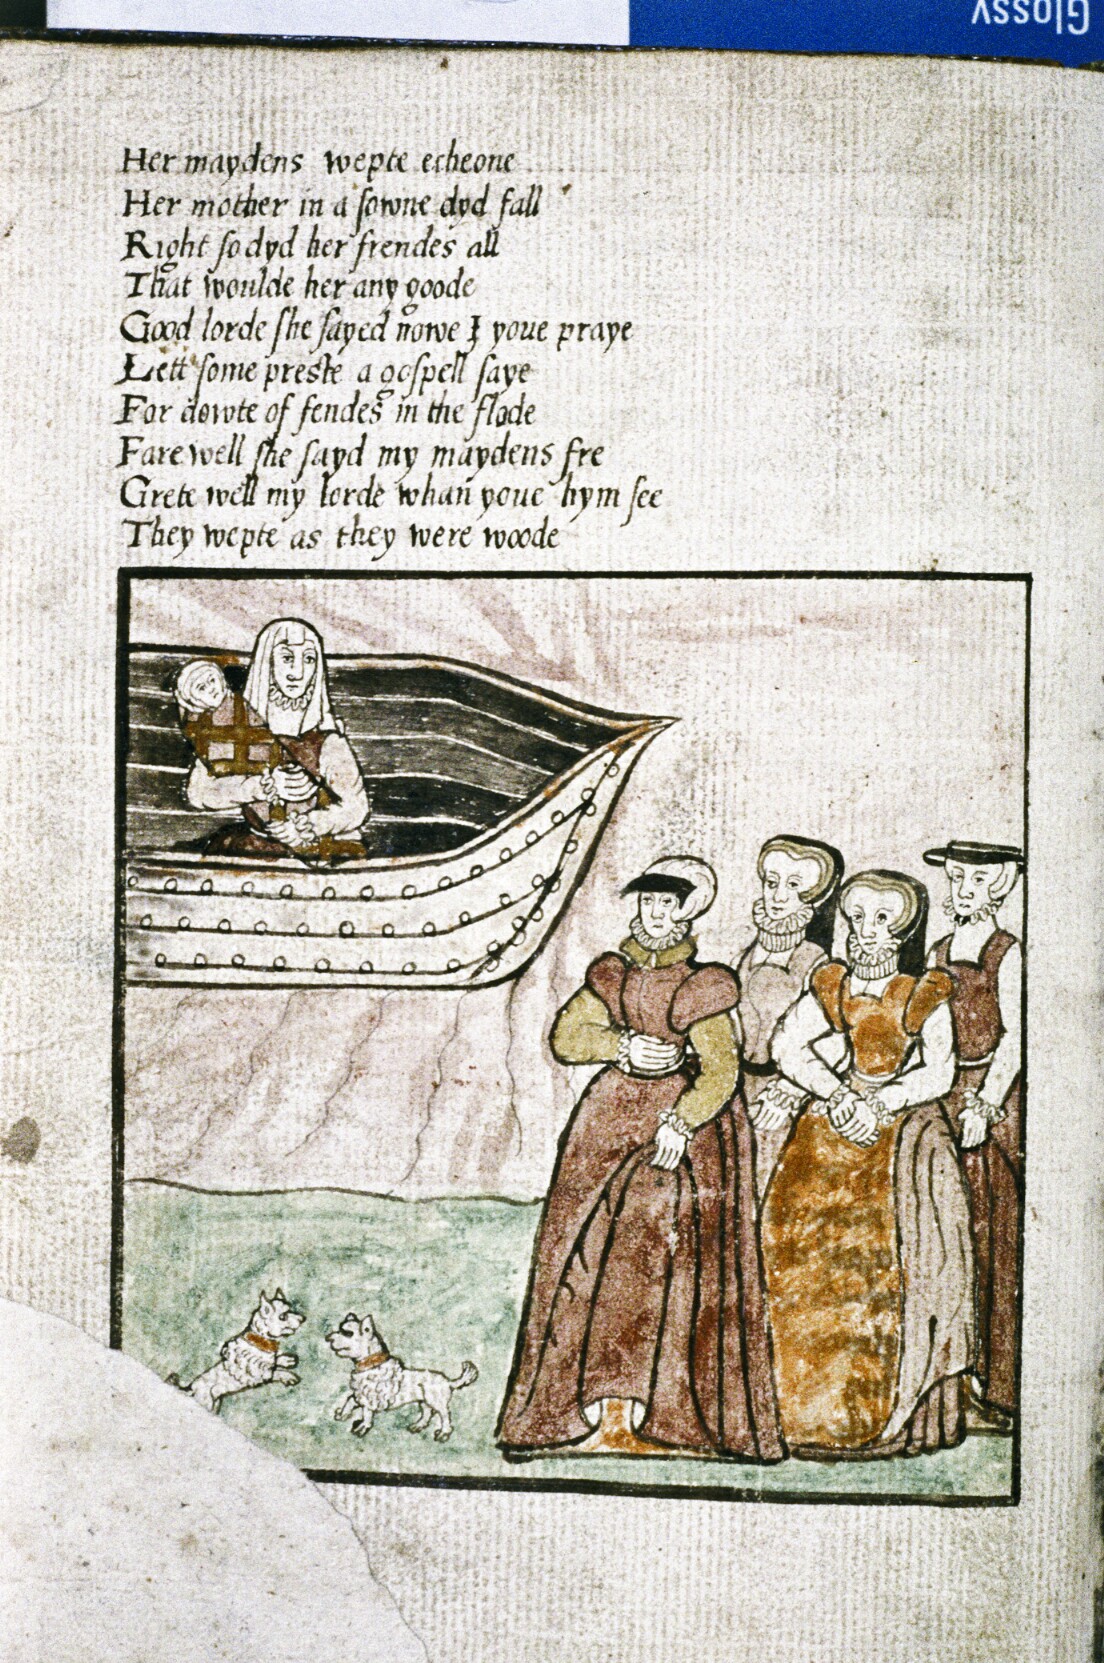 Glossy
Her maydens wepte echeone
Her mother in a sowne dyd fall
Right so dyd her frendes all
That woulde her any goode
Good lorde she sayed nowe I youe praye
Lett some preste a gospell saye
For dowte of fendes in the flode
Fare well she sayd my maydens fre
Grete well my lorde whan youe hym see
They wepte as they were woode